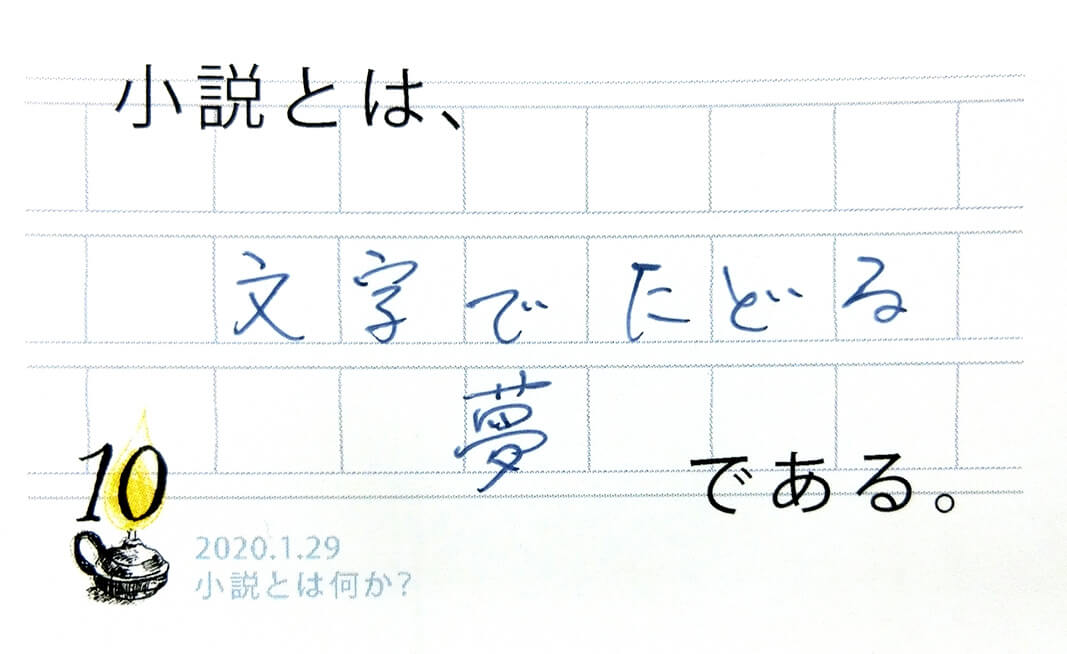 小説とは、
文字でたどる
夢
である。
10
2020.1.29
小説とは何か?